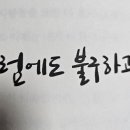 럼에도 불구하고